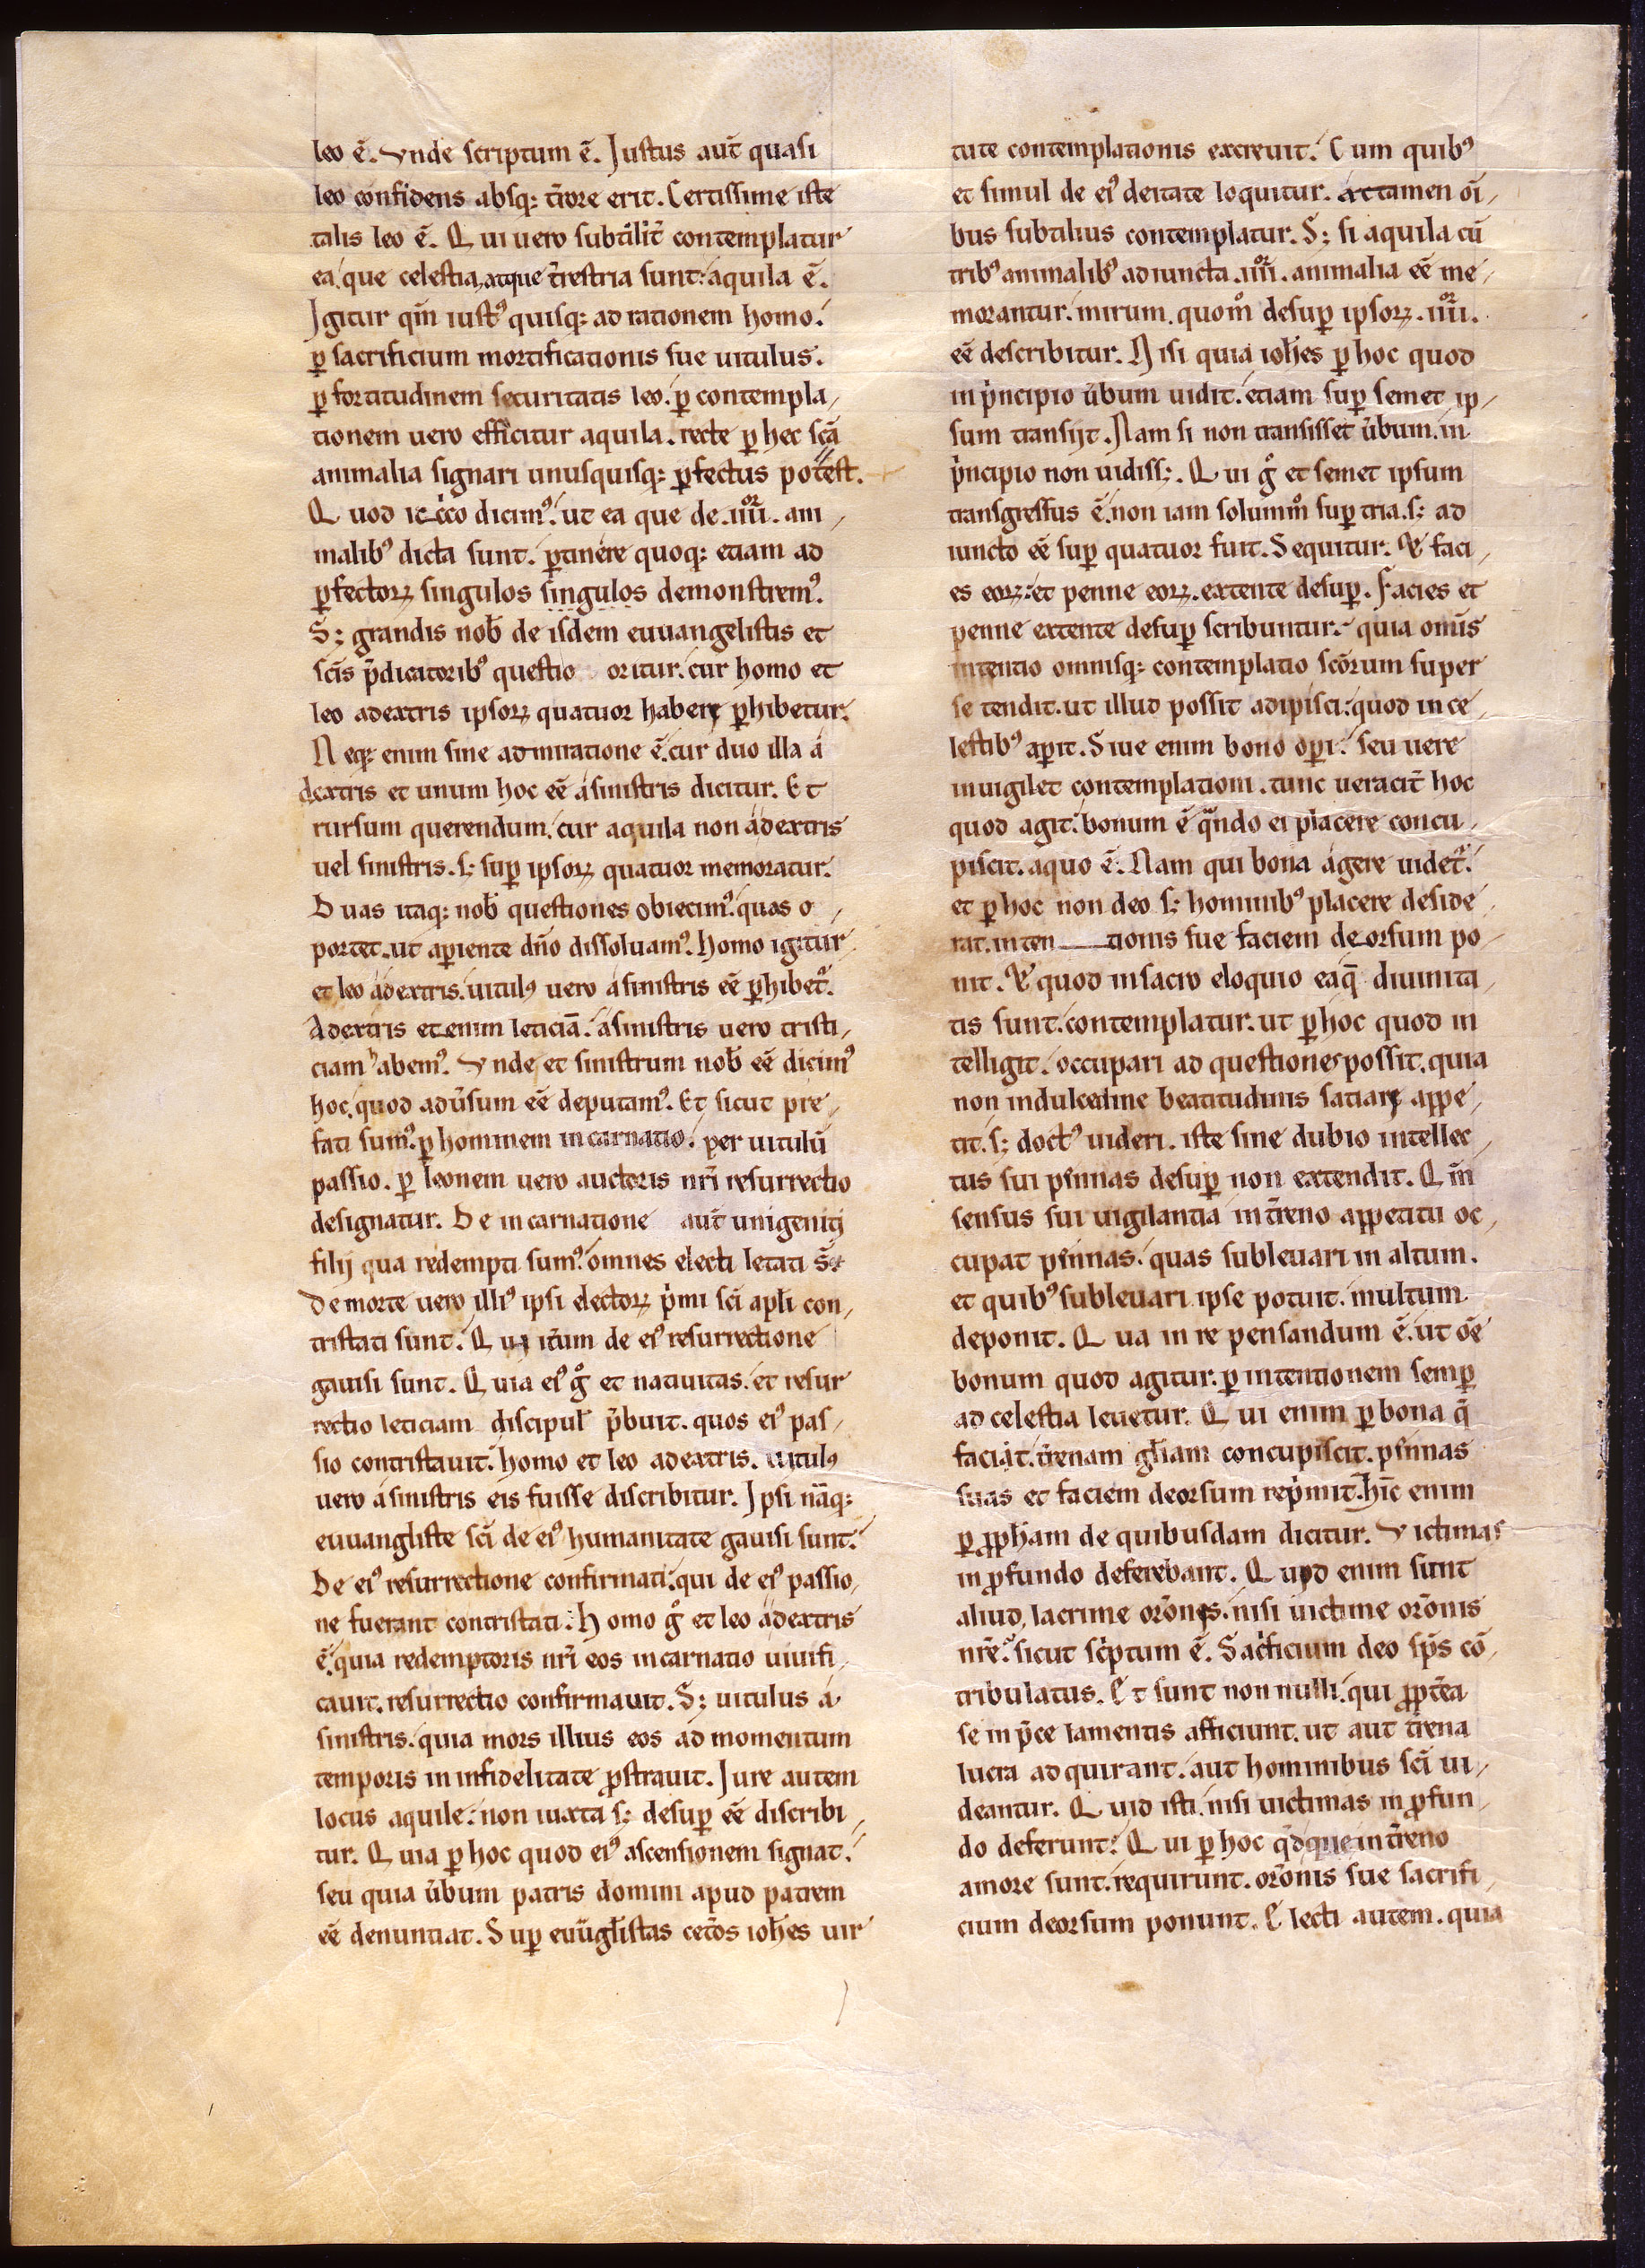 leo ē. Vnde scriptum ē. Justus aut̄ quasi
leo confidens absq; t̄rore erit. Certissime iste
talis leo ē. Qui uero subtilit̄ contemplatur
ea que celestia, atque t̄restria sunt: aquila ē.
Igitur qm̄ iustꝰ quisq; ad rationem homo.
ꝑ sacrificium mortificationis sue uitulus.
ꝑ fortitudinem securitatis leo. ꝑ contempla/
tionem uero efficitur aquila. recte ꝑ hec sc̄a
animalia signari unusquisq; ꝑfectus potest.
Quod iccirco dicimꝰ. ut ea que de .iiii͛or. ani/
malibꝰ dicta sunt. ꝑtinere quoq; etiam ad
ꝑfectoꝝ singulos singulos demonstremꝰ.
S; grandis nob̄ de isdem euuangelistis et
sc̄is p̄dicatoribꝰ questio oritur. cur homo et
leo adextris ipsoꝝ quatuor habere ꝑhibetur.
Neq; enim sine admiratione ē. cur duo illa a
dextris et unum hoc eē a sinistris dicitur. Et
rursum querendum. cur aquila non adextris
uel sinistris. s; suꝑ ipsoꝝ quatuor memoratur.
Duas itaq; nob̄ questiones obiecimꝰ. quas o/
portet. ut aꝑiente dn̄o dissoluamꝰ. homo igitur
et leo adextris. uitulꝰ uero a sinistris eē ꝑhibet᷑.
Adextris etenim leticiā. a sinistris uero tristi/
ciam habemꝰ. Vnde et sinistrum nob̄ eē dicimꝰ
hoc. quod adūsum eē deputamꝰ. Et sicut pre/
fati sumꝰ. ꝑ hominem incarnatio. per uitulū
passio. ꝑ leonem uero auctoris nr̄i resurrectio
designatur. De incarnatione aut̄ unigenitj
filij qua redempti sumꝰ. omnes electi letati s̄t
De morte uero illiꝰ ipsi electoꝝ p̍mi sc̄i apl̄i con/
tristati sunt. Qui it̄um de eiꝰ resurrectione
gauisi sunt. Quia eiꝰ gͦ et natiuitas. et resur
rectio leticiam discipul̄ p̄buit. quos eiꝰ pas/
sio contristauit. homo et leo adextris. uitulꝰ
uero a sinistris eis fuisse discribitur. Ipsi nāq;
euuangliste sc̄i de eiꝰ humanitate gauisi sunt.
De eiꝰ resurrectione confirmati. qui de eiꝰ passio/
ne fuerant contristati. Homo gͦ et leo adextris
ē. quia redemptoris nr̄i eos incarnatio uiuifi/
cauit. resurrectio confirmauit. S; uitulus a
sinistris. quia mors illius eos ad momentum
temporis in infidelitate ꝓstrauit. Jure autem
locus aquile. non iuxta s; desuꝑ eē discribi/
tur. Quia ꝑ hoc quod eiꝰ ascensionem signat.
seu quia ūbum patris domini apud patrem
eē denuntiat. Suꝑ euūgl̄istas cet̄os ioh̄es uir
tute contemplationis excreuit. Cum quibꝰ
et simul de eiꝰ deitate loquitur. actamen oī
bus subtilius contemplatur. S; si aquila cū
tribꝰ animalibꝰ adiuncta .iiii͛or. animalia eē me/
morantur. mirum. quom͛o desuꝑ ipsoꝝ .iiii͛or.
eē describitur. Nisi quia ioh̄es ꝑ hoc quod
in p̍ncipio ūbum uidit. etiam suꝑ semet ip/
sum transijt. Nam si non transisset ūbum. in
p̍ncipio non uidiss;. Qui gͦ et semet ipsum
transgressus ē. non iam solumm͛o suꝑ tria. s; ad
iuncto eē suꝑ quatuor fuit. Sequitur. & faci/
es eoꝝ: et penne eoꝝ. extente desuꝑ. Facies et
penne extente desuꝑ scribuntur. quia omīs
intentio omnisq; contemplatio sc̄orum super
se tendit. ut illud possit adipisci: quod in ce/
lestibꝰ aꝑit. Siue enim bono oꝑi. seu uere
inuigilet contemplationi. tunc ueracit̄ hoc
quod agit. bonum ē qᷓndo ei placere concu/
piscit. aquo ē. Nam qui bona agere uidet᷑.
et ꝑ hoc non deo s; hominibꝰ placere deside/
rat. inten tionis sue faciem deorsum po/
nit. & quod in sacro eloquio ea q̄ diuinita/
tis sunt. contemplatur. ut ꝑ hoc quod in
telligit. occupari ad questiones possit. quia
non indulcedine beatitudinis satiare appe/
tit. s; doctꝰ uideri. iste sine dubio intellec/
tus sui pennas desuꝑ non extendit. Qm̄
sensus sui uigilantia in t̄reno appetitu oc/
cupat pennas. quas subleuari in altum.
et quibꝰ subleuari ipse potuit. multum
deponit. Qua in re pensandum ē. ut oē
bonum quod agitur. ꝑ intentionem semꝑ
ad celestia leuetur. Qui enim ꝑ bona q̄
faciat. t̄renam gl̄iam concupiscit. pennas
suas et faciem deorsum rep̍mit. hīc enim
ꝑ ꝓph̄am de quibusdam dicitur. Victimas
in ꝓfundo deferebant. Quid enim sunt
aliud, lacrime or̄onis. nisi uictime or̄onis
nr̄e. sicut sc̍ptum ē. Sac̍ficium deo sp̄s cō/
tribulatus. Et sunt non nulli. qui ꝓpt̄ea
se in p̄ce lamentis afficiunt. ut aut t̄rena
lucra adquirant. aut hominibus sc̄i ui/
deantur. Quid isti. nisi uictimas in ꝓfun/
do deferunt. Qui ꝑ hoc q̄d que in t̄reno
amore sunt. requirunt. or̄onis sue sacrifi/
cium deorsum ponunt. Electi autem. quia